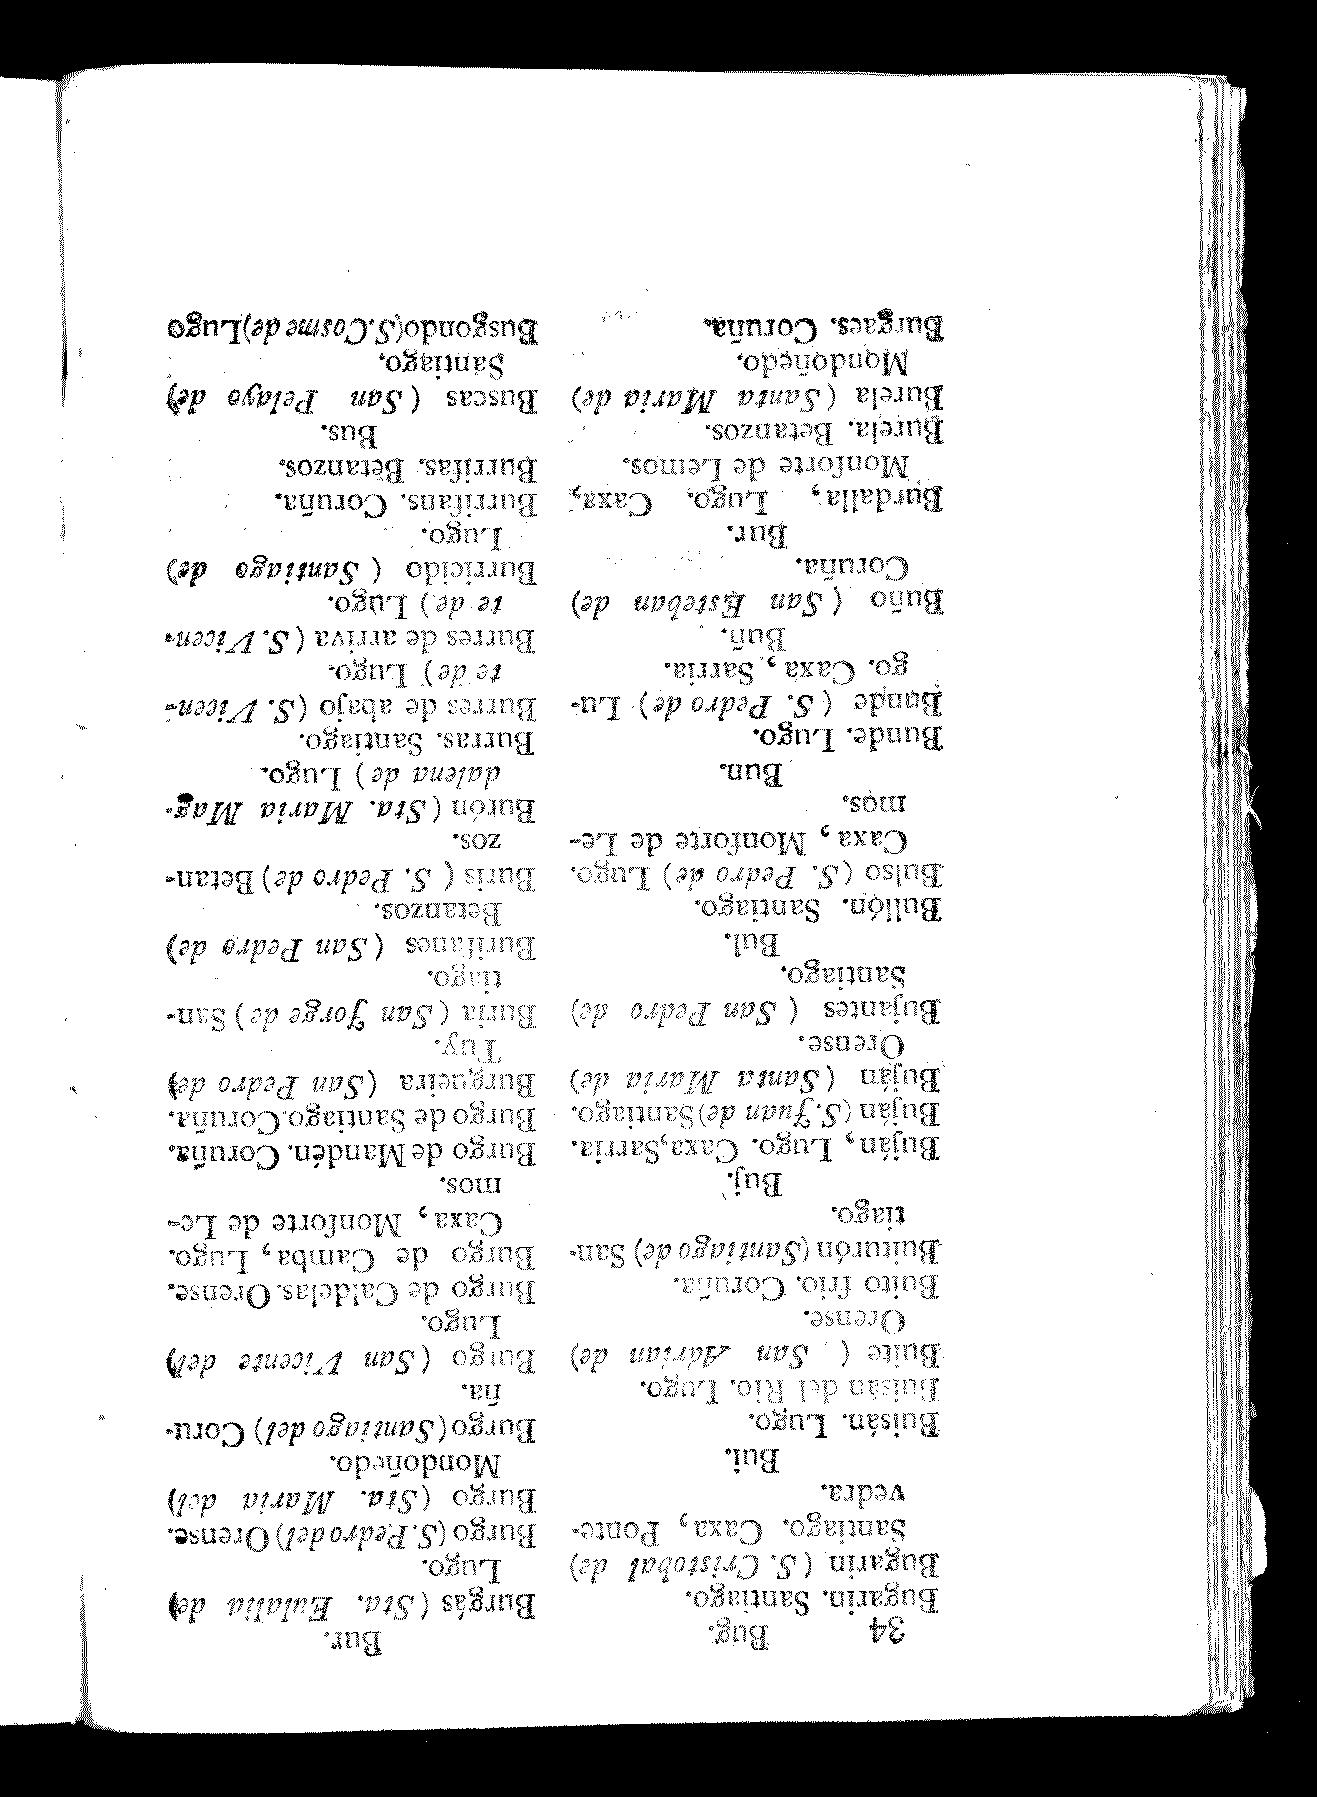 34 Bug.
Bugarin. Santiago.
Bugarin (S. Cristobal de)
Santiago. Caxa, Ponte-
vedra.
Bui.
Buisán. Lugo.
Buisán del Rio. Lugo.
Buite ( San Adrian de)
Orense.
Buito frio. Coruña.
Buiturón (Santiago de) San-
tiago.
Buj.
Buján, Lugo. Caxa, Sarria.
Buján (S. Juan de) Santiago.
Buján (Santa Maria de)
Orense.
Bujantes ( San Pedro de)
Santiago.
Bul.
Bullón. Santiago.
Bulso (S. Pedro de) Lugo.
Caxa, Monforte de Le-
mos.
Bun.
Bunde. Lugo.
Bunde ( S. Pedro de) Lu-
go. Caxa, Sarria.
Buñ.
Buño ( San Esteban de)
Coruña.
Bur.
Burdalla, Lugo. Caxa,
Monforte de Lemos.
Burela. Betanzos.
Burela (Santa Maria de)
Mondoñedo.
Burgaes. Coruña.
Bur.
Burgás (Sta. Eulalia de)
Lugo.
Burgo (S. Pedro del) Orense.
Burgo (Sta. Maria del)
Mondoñedo.
Burgo (Santiago del) Coru-
ña.
Burgo (San Vicente del)
Lugo.
Burgo de Caldelas. Orense.
Burgo de Camba, Lugo.
Caxa, Monforte de Le-
mos.
Burgo de Mandén. Coruña.
Burgo de Santiago. Coruña.
Burgueira (San Pedro de)
Tuy.
Buria (San Jorge de) San-
tiago.
Burifanos (San Pedro de)
Betanzos.
Buris ( S. Pedro de) Betan-
zos.
Burón (Sta. Maria Mag-
dalena de) Lugo.
Burras. Santiago.
Burres de abajo (S. Vicen-
te de) Lugo.
Burres de arriva (S. Vicen-
te de) Lugo.
Burricido ( Santiago de)
Lugo.
Burrifans. Coruña.
Burrifas. Betanzos.
Bus.
Buscas ( San Pelayo de)
Santiago.
Busgondo (S. Cosme de) Lugo